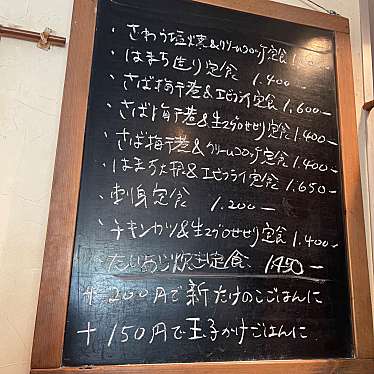 ・さわら塩焼&クリームコロッケ定食 1,
・はまち造り定食 1.400ー
・さば梅干煮&エビフライ定食 1,600ー
・さば梅干煮&生マグロせせり定食 1.400ー
・さば梅干煮&クリームコロッケ定食 1.400ー
・はまち大根&エビフライ定食 1.650ー
・刺身定食 1.200ー
・チキンカツ&生マグロせせり定食 1.400ー
・たいあら炊き定食 1450ー
+200円で新たけのこごはんに
+150円で玉子かけごはんに